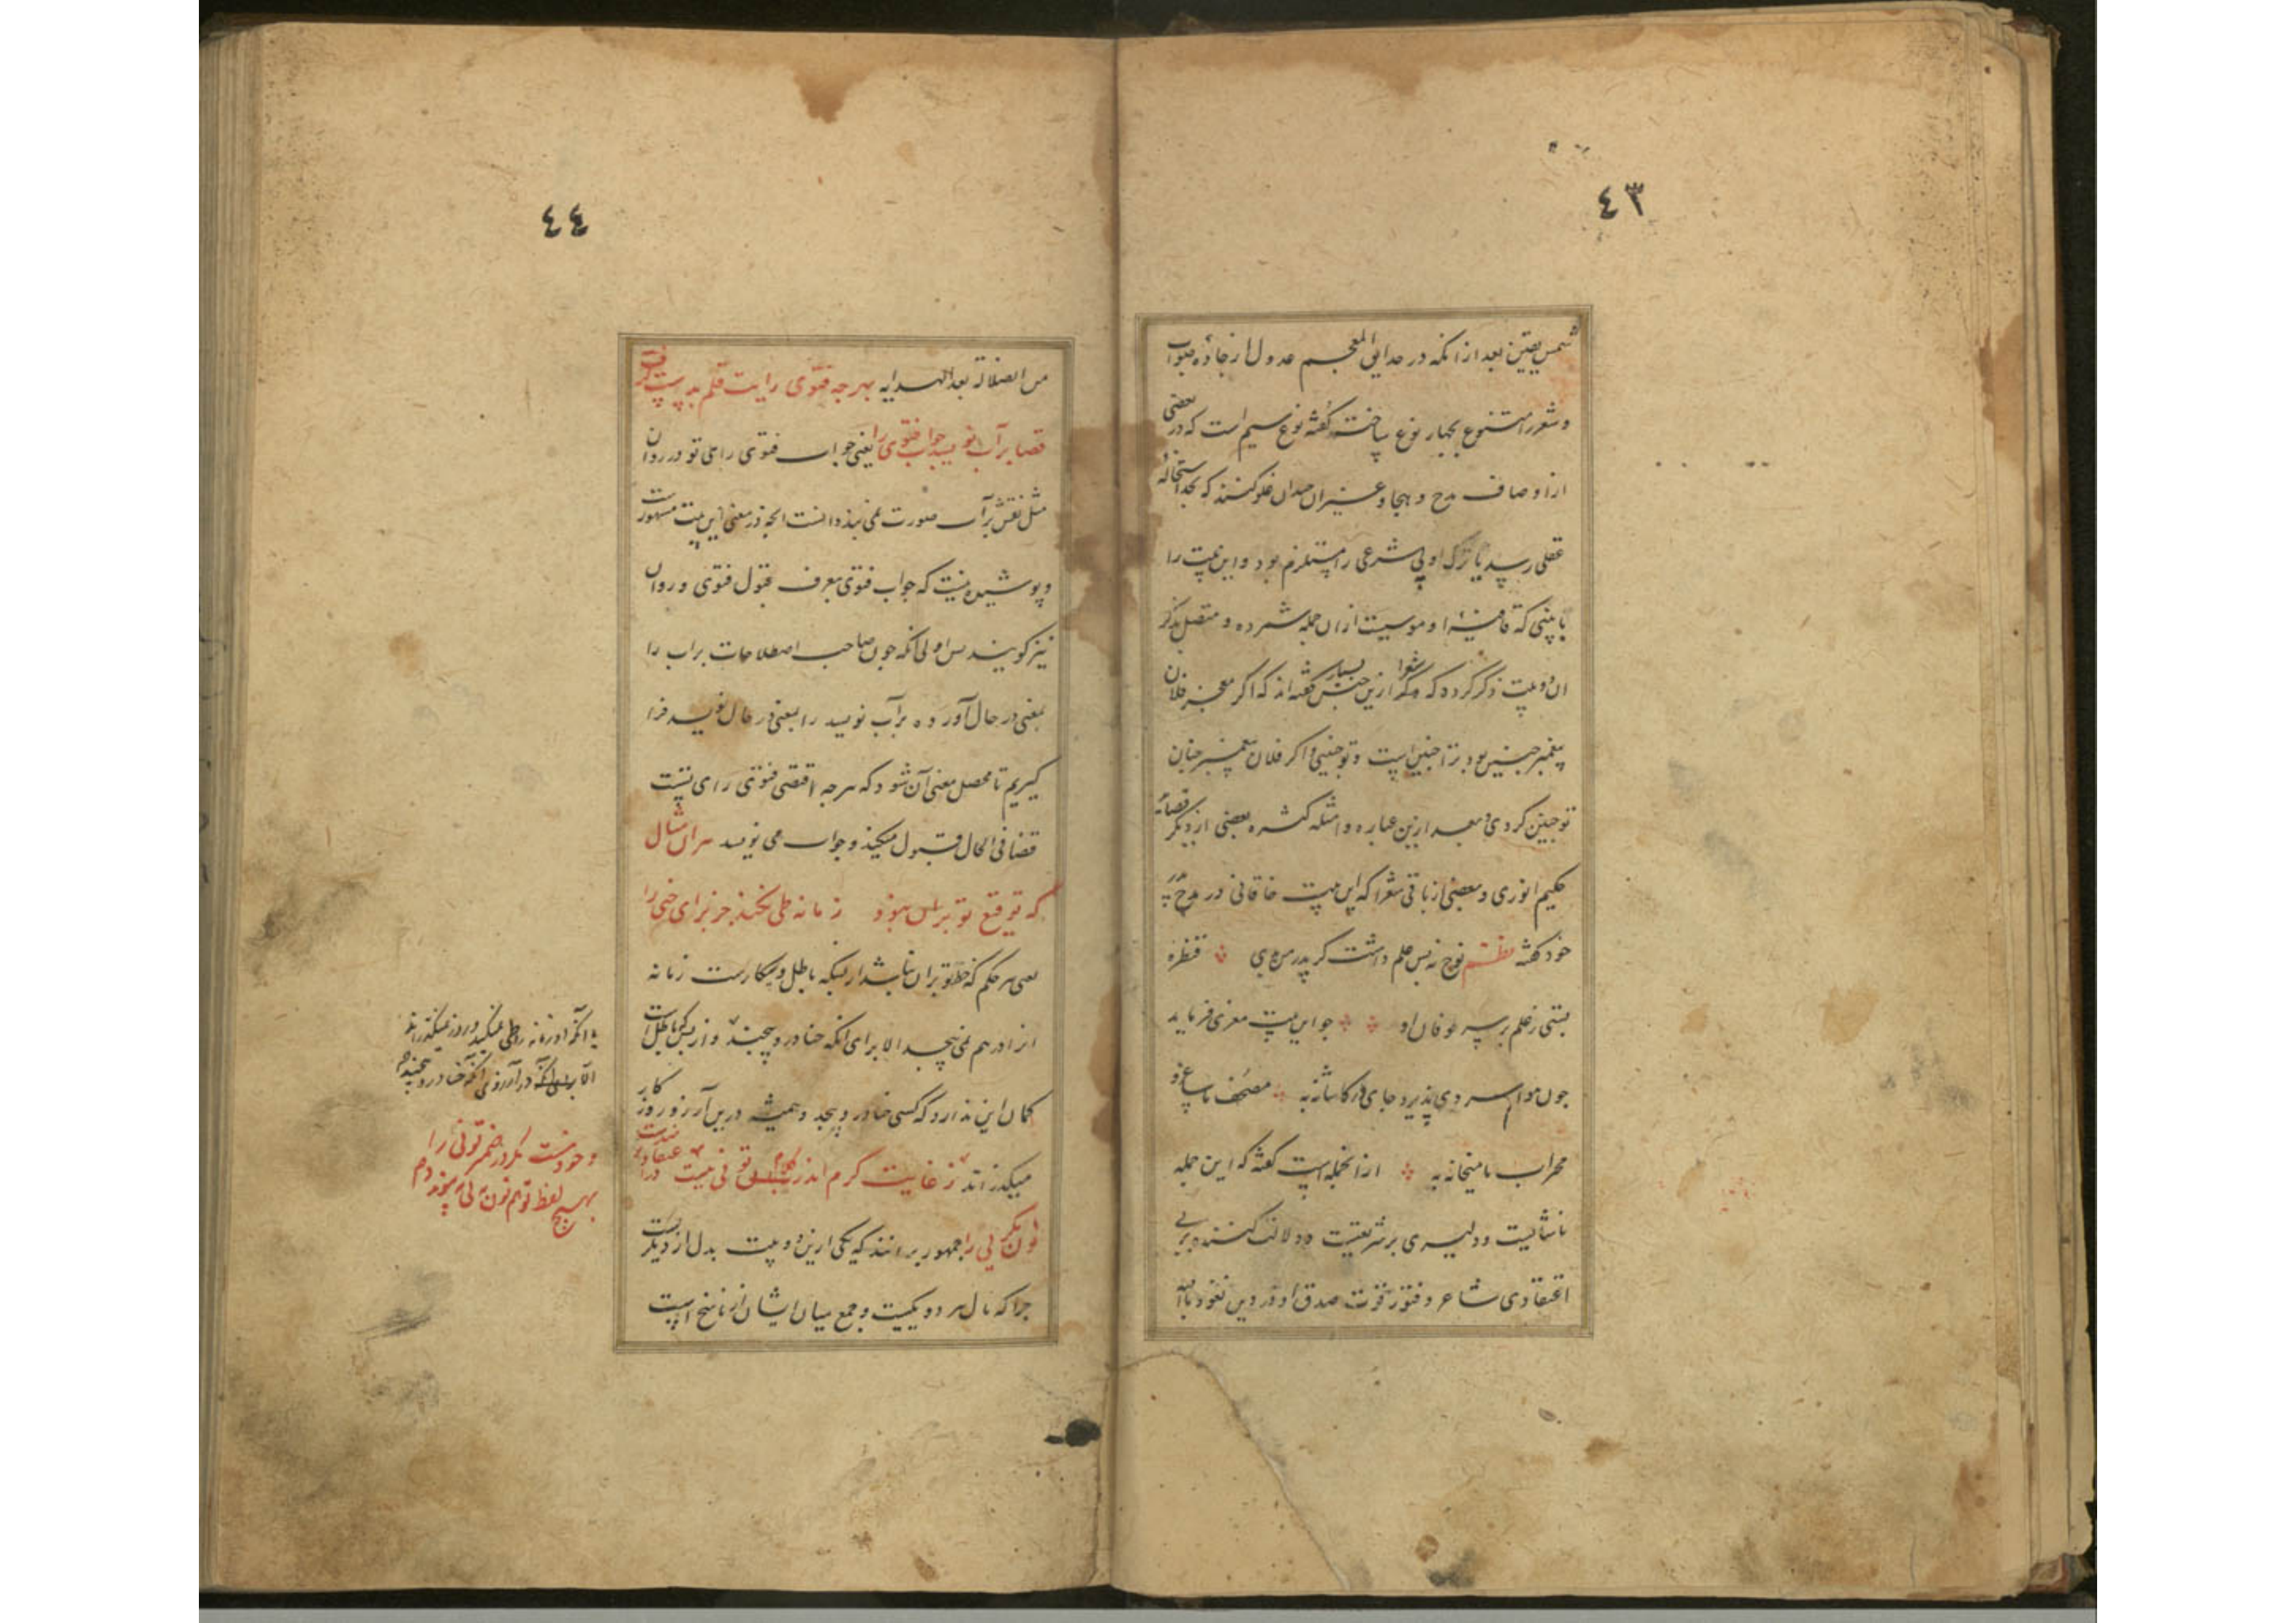 ٤٣
شمس یقین بعد از انکه در حدایق المعجم عدول از جاده صواب
و شعر را متنوع بچهار نوع ساخته گفته نوع سیم است که در بعضی
از اوصاف مدح و هجا و غیر ان چندان غلو کنند که بحد استحاله
عقلی رسد یا ترک اوبی شرعی را مستلزم بود و این بیت را
با بیتی که از ان جمله شمرده و متصل بذکر
ان دو بیت ذکر کرده که شعرا ازین جنس بسیار گفته اند که اگر معجز فلان
پیغمبر چنین بود ترا چنین است و تو چنینی و اگر فلان پیغمبر چنان
تو چنین کردی و بعد ازین عباره و امثله کثیره بعضی از دیگر قصائد
حکیم انوری و بعضی از باقی شعرا که این بیت خاقانی در مدح پدر
خود گفته نظم نوح نه بس علم داشت گر پدر من بدی قنطره
بستی ز علم بر سر طوفان او جو این بیت معزی فرماید
چون موسم سر دی پذیرد جای در کاشانه به مصحف با ساغر و
محراب با میخانه به از انجمله است گفته که این جمله
ناشایست و دلیری بر شریعت و دلالت کننده بر بی
اعتقادی شاعر و فتور قوت صدق او در دین نعوذ بالله
٤٤
من الضلالة بعد الهدایه بهر چه فتوی رایت قلم بدست گرفت
قضا بر آب نویسد جواب فتوی را یعنی جواب فتوی رای تو در روان
مثل نقش بر آب صورت نمی بندد انست انچه در معنی این بیت مشهورست
و پوشیده نیست که جواب فتوی بعرف قبول فتوی و روان
نیز گویند پس اولی انکه چون صاحب اصطلاحات بر آب را
بمعنی در حال آورده بر آب نویسد را بمعنی در حال نویسد فرا
گیریم تا محصل معنی آن شود که هر چه اقتضی فتوی رای تست
قضا فی الحال قبول میکند و جواب می نویسد هران مثال
که توقیع تو بران نبود زمانه طی نکند جز برای حنی را
یعنی هر حکم که خط تو بران نباشد از بسکه باطل و بیکارست زمانه
انرا در هم نمی پیچد الا برای انکه حنا درو پیچند و از بس که باطل است
گمان این ندارد که کسی حنا درو پیچد و همیشه درین آرزو روزکار
میگذراند ز غایت کرم اندر کلام تو نی نیست در اعتقاد تو ضدست
نون مگر نی را جمهور برانند که یکی ازین دو بیت بدل از دیگرست
چرا که مآل هر دو یکیست و جمع میان ایشان از ناسخ است
یا انکه او زمانه را طی نمیکند و روز نمیگذراند
الا در آرزوی آنکه حنا درو پیچند
وجود نیست مگر در ضمیر تو نی را
بهیچ لفظ تو هم نون نمی پیوندد